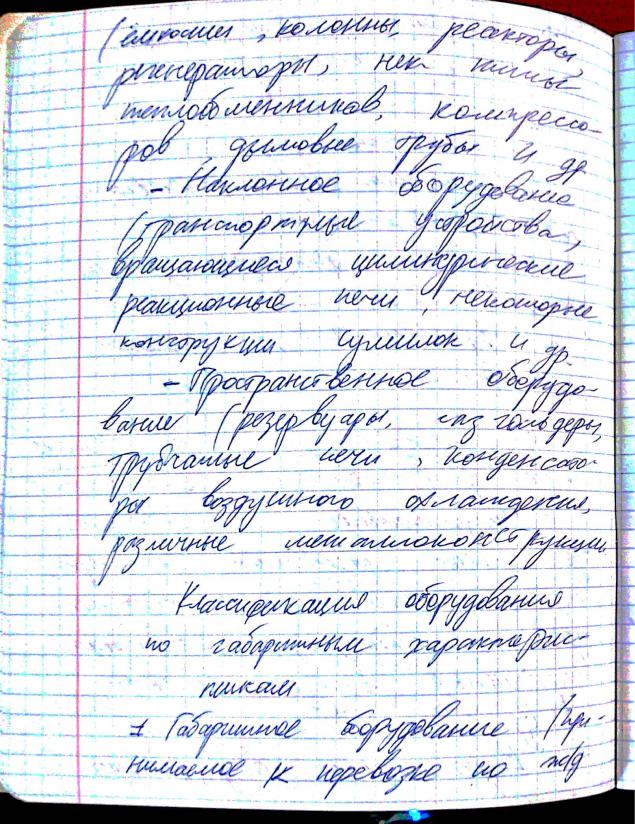 (ёмкости, колонны, реакторы,
регенераторы, нек типы
теплообменников, компрессо-
ров, дымовые трубы и др
- Наклонное оборудование
(транспортные устройства,
вращающиеся цилиндрические
реакционные печи, некоторые
конструкции сушилок и др.
- Пространственное оборудо-
вание (резервуары, газгольдеры,
трубчатые печи, конденсато-
ры воздушного охлаждения,
различные металлоконструкции
Классификация оборудования
по габаритным характерис-
тикам
1 Габаритное оборудование (при-
нимаемое к перевозке по ж/д